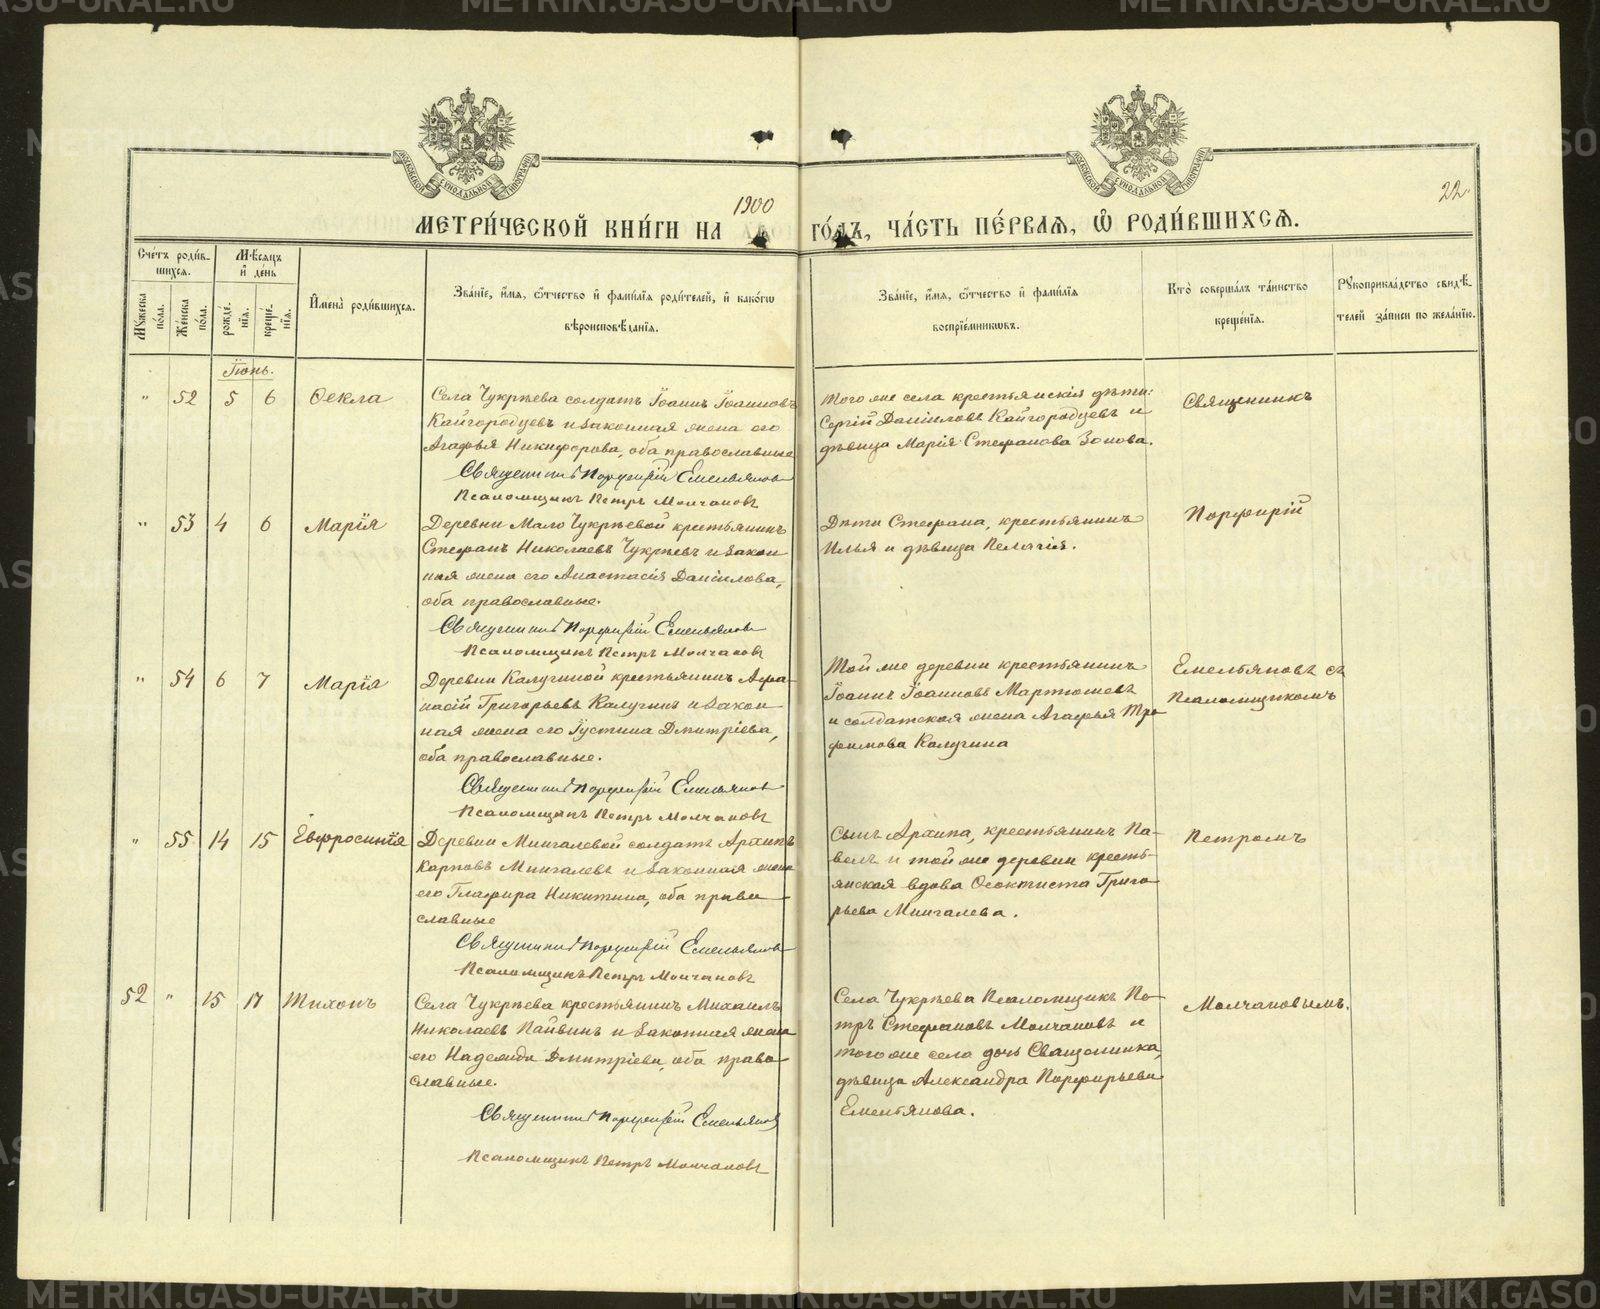 METRIKI.GASO-URAL.RU
1900
22.
МЕТРИ́ЧЕСКОЙ КНИ́ГИ НА ГО́ДЪ, ЧА́СТЬ ПЕ́РВАЯ, Ѿ РОДИ́ВШИХСѦ.
МОСКОВСКОЙ СУНОДАЛЬНОЙ ТИПОГРАФІИ
МОСКОВСКОЙ СУНОДАЛЬНОЙ ТИПОГРАФІИ
Сче́тъ роди́в-
шихсѧ.
Мꙋ́жеска по́ла.
Же́нска по́ла.
Мѣ́сѧцъ
и҆ де́нь
рожде́-нїѧ.
креще́-нїѧ.
И҆мена̀ роди́вшихсѧ.
Зва́нїе, и҆́мѧ, ѻ҆́тчество и҆ фами́лїѧ роди́телей, и҆ како́гѡ
вѣроисповѣ́данїѧ.
Зва́нїе, и҆́мѧ, ѻ҆́тчество и҆ фами́лїѧ
воспрїе́мникѡвъ.
Кто̀ соверша́лъ та́инство
креще́нїѧ.
Рꙋкоприкла́дство свидѣ́-
телей за́писи по жела́нїю.
Іюнь.
" 52 5 6 Ѳекла
Села Чукрѣева солдатъ Іоаннъ Іоанновъ
Кайгородцевъ и законная жена его
Агафья Никифорова, оба православные
Священникъ Порфирій Емельяновъ
Псаломщикъ Петръ Молчановъ
Того же села крестьянскія дѣти:
Сергій Даніиловъ Кайгородцевъ и
дѣвица Марія Стефанова Зонова.
Священникъ
" 53 4 6 Марія
Деревни Мало Чукрѣевой крестьянинъ
Стефанъ Николаевъ Чукрѣевъ и закон
ная жена его Анастасія Даніилова,
оба православные.
Священникъ Порфирій Емельяновъ
Псаломщикъ Петръ Молчановъ
Дѣти Стефана, крестьянинъ
Илья и дѣвица Пелагія.
Порфирій
" 54 6 7 Марія
Деревни Калугиной крестьянинъ Афа-
насій Григорьевъ Калугинъ и закон
ная жена его Іустина Дмитріева,
оба православные.
Священникъ Порфирій Емельяновъ
Псаломщикъ Петръ Молчановъ
Той же деревни крестьянинъ
Іоаннъ Іоанновъ Мартюшевъ
и солдатская жена Агафья Тро
фимова Калугина
Емельяновъ съ
Псаломщикомъ
" 55 14 15 Евфросинія
Деревни Мингалевой солдатъ Архипъ
Карповъ Мингалевъ и законная жена
его Глафира Никитина, оба право
славные
Священникъ Порфирій Емельяновъ
Псаломщикъ Петръ Молчановъ
Сынъ Архипа, крестьянинъ Па-
велъ и той же деревни кресть-
янская вдова Ѳеоктиста Григо
рьева Мингалева.
Петромъ
52 " 15 17 Тихонъ
Села Чукрѣева крестьянинъ Михаилъ
Николаевъ Пайвинъ и законная жена
его Надежда Дмитріева, оба право-
славные.
Священникъ Порфирій Емельяновъ
Псаломщикъ Петръ Молчановъ
Села Чукрѣева Псаломщикъ Пе-
тръ Стефановъ Молчановъ и
того же села дочь Священника,
дѣвица Александра Порфирьева
Емельянова.
Молчановымъ.